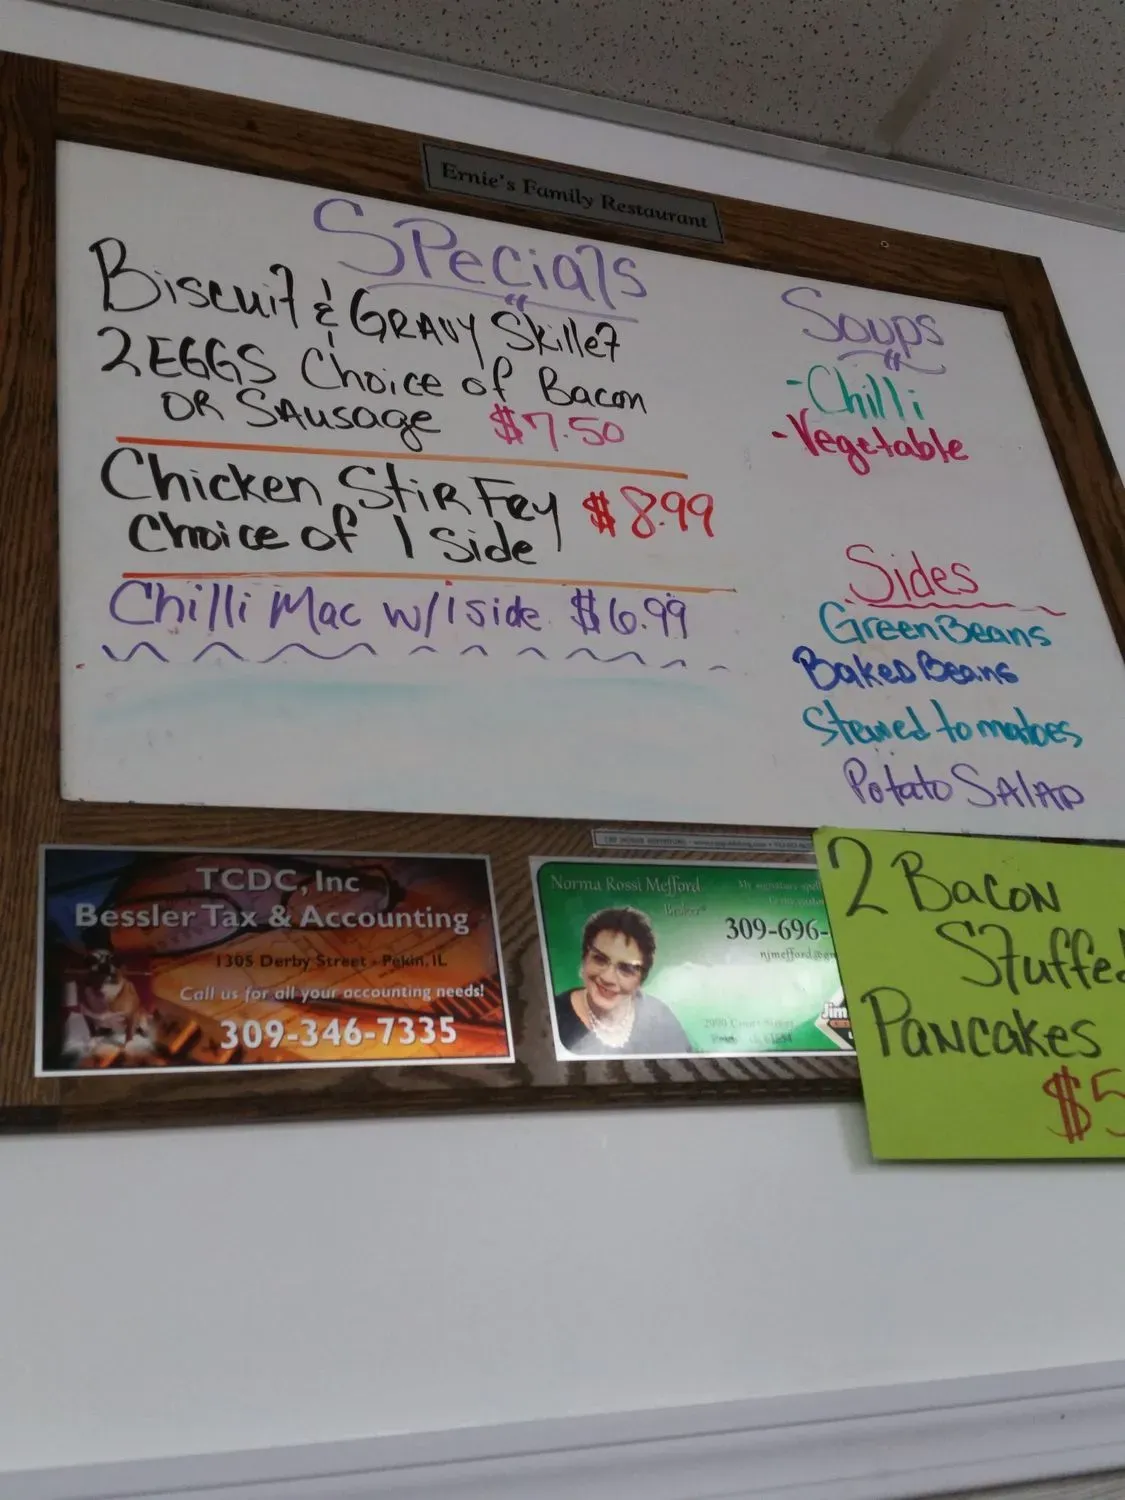 Ernie's Family Restaurant
Specials
Biscuit & GRAVY Skillet
2 EGGS Choice of Bacon
OR SAusage $7.50
Chicken Stir Fry $8.99
Choice of 1 side
Chilli Mac w/1 side $6.99
Soups
-Chilli
-Vegetable
Sides
Green Beans
Baked Beans
Stewed tomatoes
Potato SALAD
TCDC, Inc
Bessler Tax & Accounting
1305 Derby Street - Pekin, IL
Call us for all your accounting needs!
309-346-7335
Norma Rossi Mefford
Broker
309-696-
njmefford@gm
Jim
2 Bacon
Stuffed
Pancakes
$5